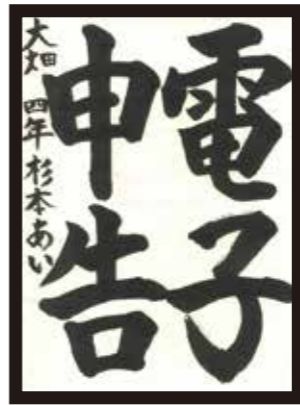 電子
申告
大畑 四年 杉本あい